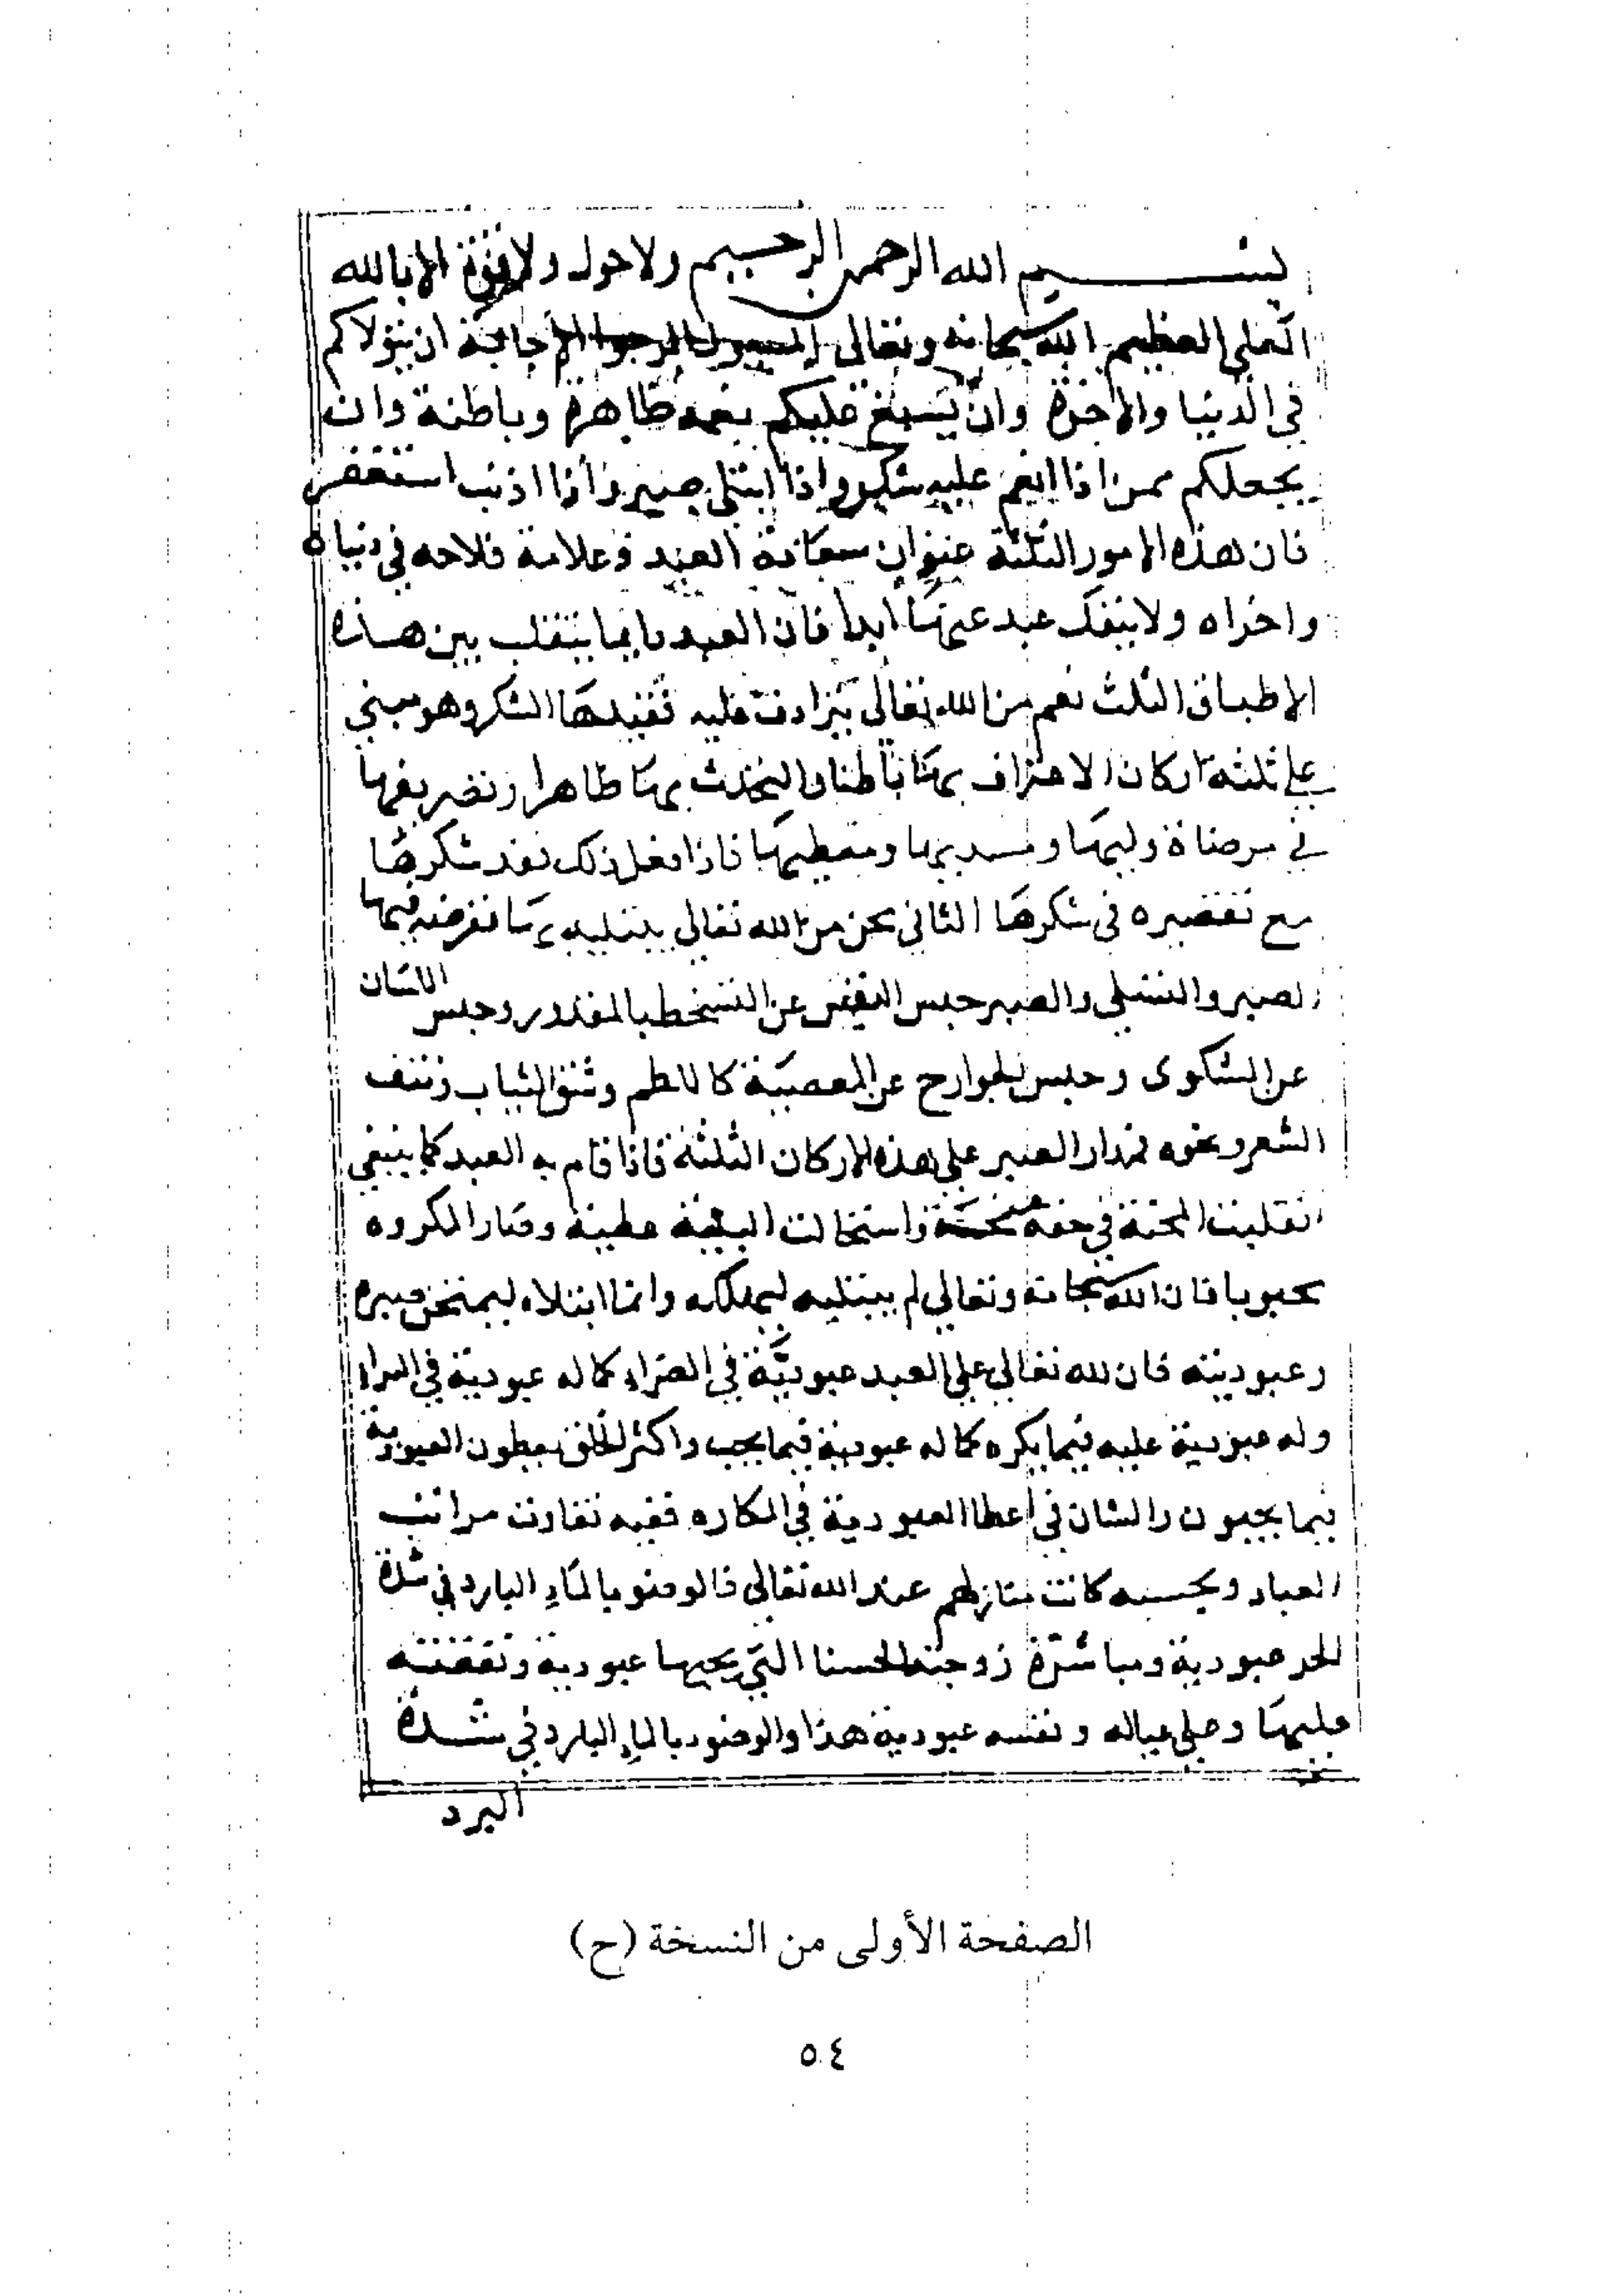 بسم الله الرحمن الرحيم ولا حول ولا قوة الا بالله
العلي العظيم الله سبحانه وتعالى المسول المرجو الاجابة ان يتولاكم
في الدنيا والاخرة وان يسبغ عليكم نعمه ظاهرة وباطنة وان
يجعلكم ممن اذا انعم عليه شكر واذا ابتلي صبر واذا اذنب استغفر
فان هذه الامور الثلثة عنوان سعادة العبد وعلامة فلاحه في دنياه
واخراه ولا ينفك عبد عنها ابدا فان العبد دايما يتقلب بين هذه
الاطباق الثلث نعم من الله تعالى تترادف عليه تقيدها الشكر وهو مبني
على ثلثة اركان الاعتراف بها باطنا والتحدث بها ظاهرا وتصريفها
في مرضاة وليها ومسديها ومعطيها فاذا فعل ذلك فقد شكرها
مع تقصيره في شكرها الثاني محن من الله تعالى يبتليه بها ففرضه فيها
الصبر والتسلي والصبر حبس النفس عن التسخط بالمقدور وحبس اللسان
عن الشكوى وحبس الجوارح عن المعصية كاللطم وشق الثياب ونتف
الشعر ونحوه فمدار الصبر على هذه الاركان الثلثة فاذا قام به العبد كما ينبغي
انقلبت المحنة في حقه منحة واستحالت البلية عطية وصار المكروه
محبوبا فان الله سبحانه وتعالى لم يبتليه ليهلكه وانما ابتلاه ليمتحن صبره
وعبوديته فان لله تعالى على العبد عبودية في الضراء كما له عبودية في السراء
وله عبودية عليه فيما يكره كما له عبودية فيما يحب واكثر الخلق يعطون العبودية
فيما يحبون والشان في اعطا العبودية في المكاره ففيه تفاوت مراتب
العباد وبحسبه كانت منازلهم عند الله تعالى فالوضو بالماء البارد في شدة
الحر عبودية ومباشرة زوجته الحسنا التي يحبها عبودية ونفقته
عليها وعلى عياله ونفسه عبودية هذا والوضوء بالماء البارد في شدة
البرد
الصفحة الأولى من النسخة (ح)
٥٤